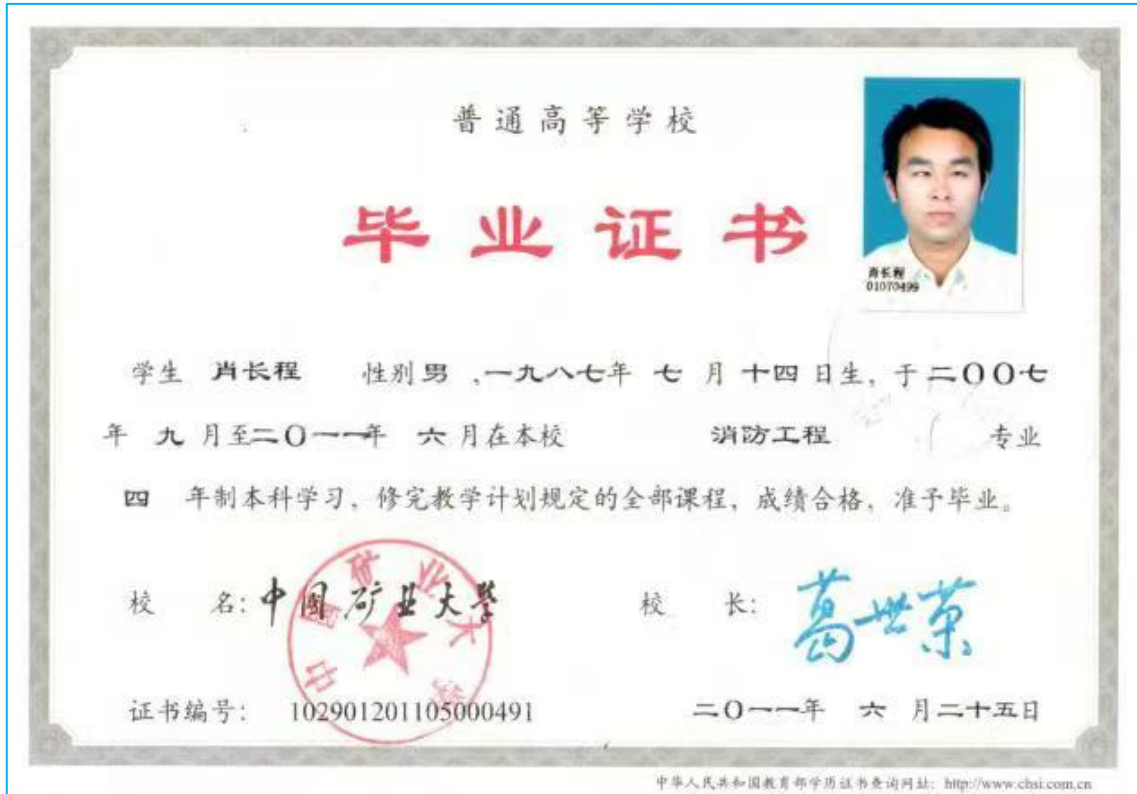 普通高等学校
毕业证书
肖长程
01070499
学生 肖长程 性别 男 ,一九八七年 七 月 十四 日生, 于 二〇〇七
年 九 月至二〇一一年 六 月在本校 消防工程 专业
四 年制本科学习, 修完教学计划规定的全部课程, 成绩合格, 准予毕业。
校 名: 中国矿业大学
校 长: 葛世荣
中国矿业大学
证书编号: 102901201105000491
二〇一一年 六 月二十五日
中华人民共和国教育部学历证书查询网址: http://www.chsi.com.cn